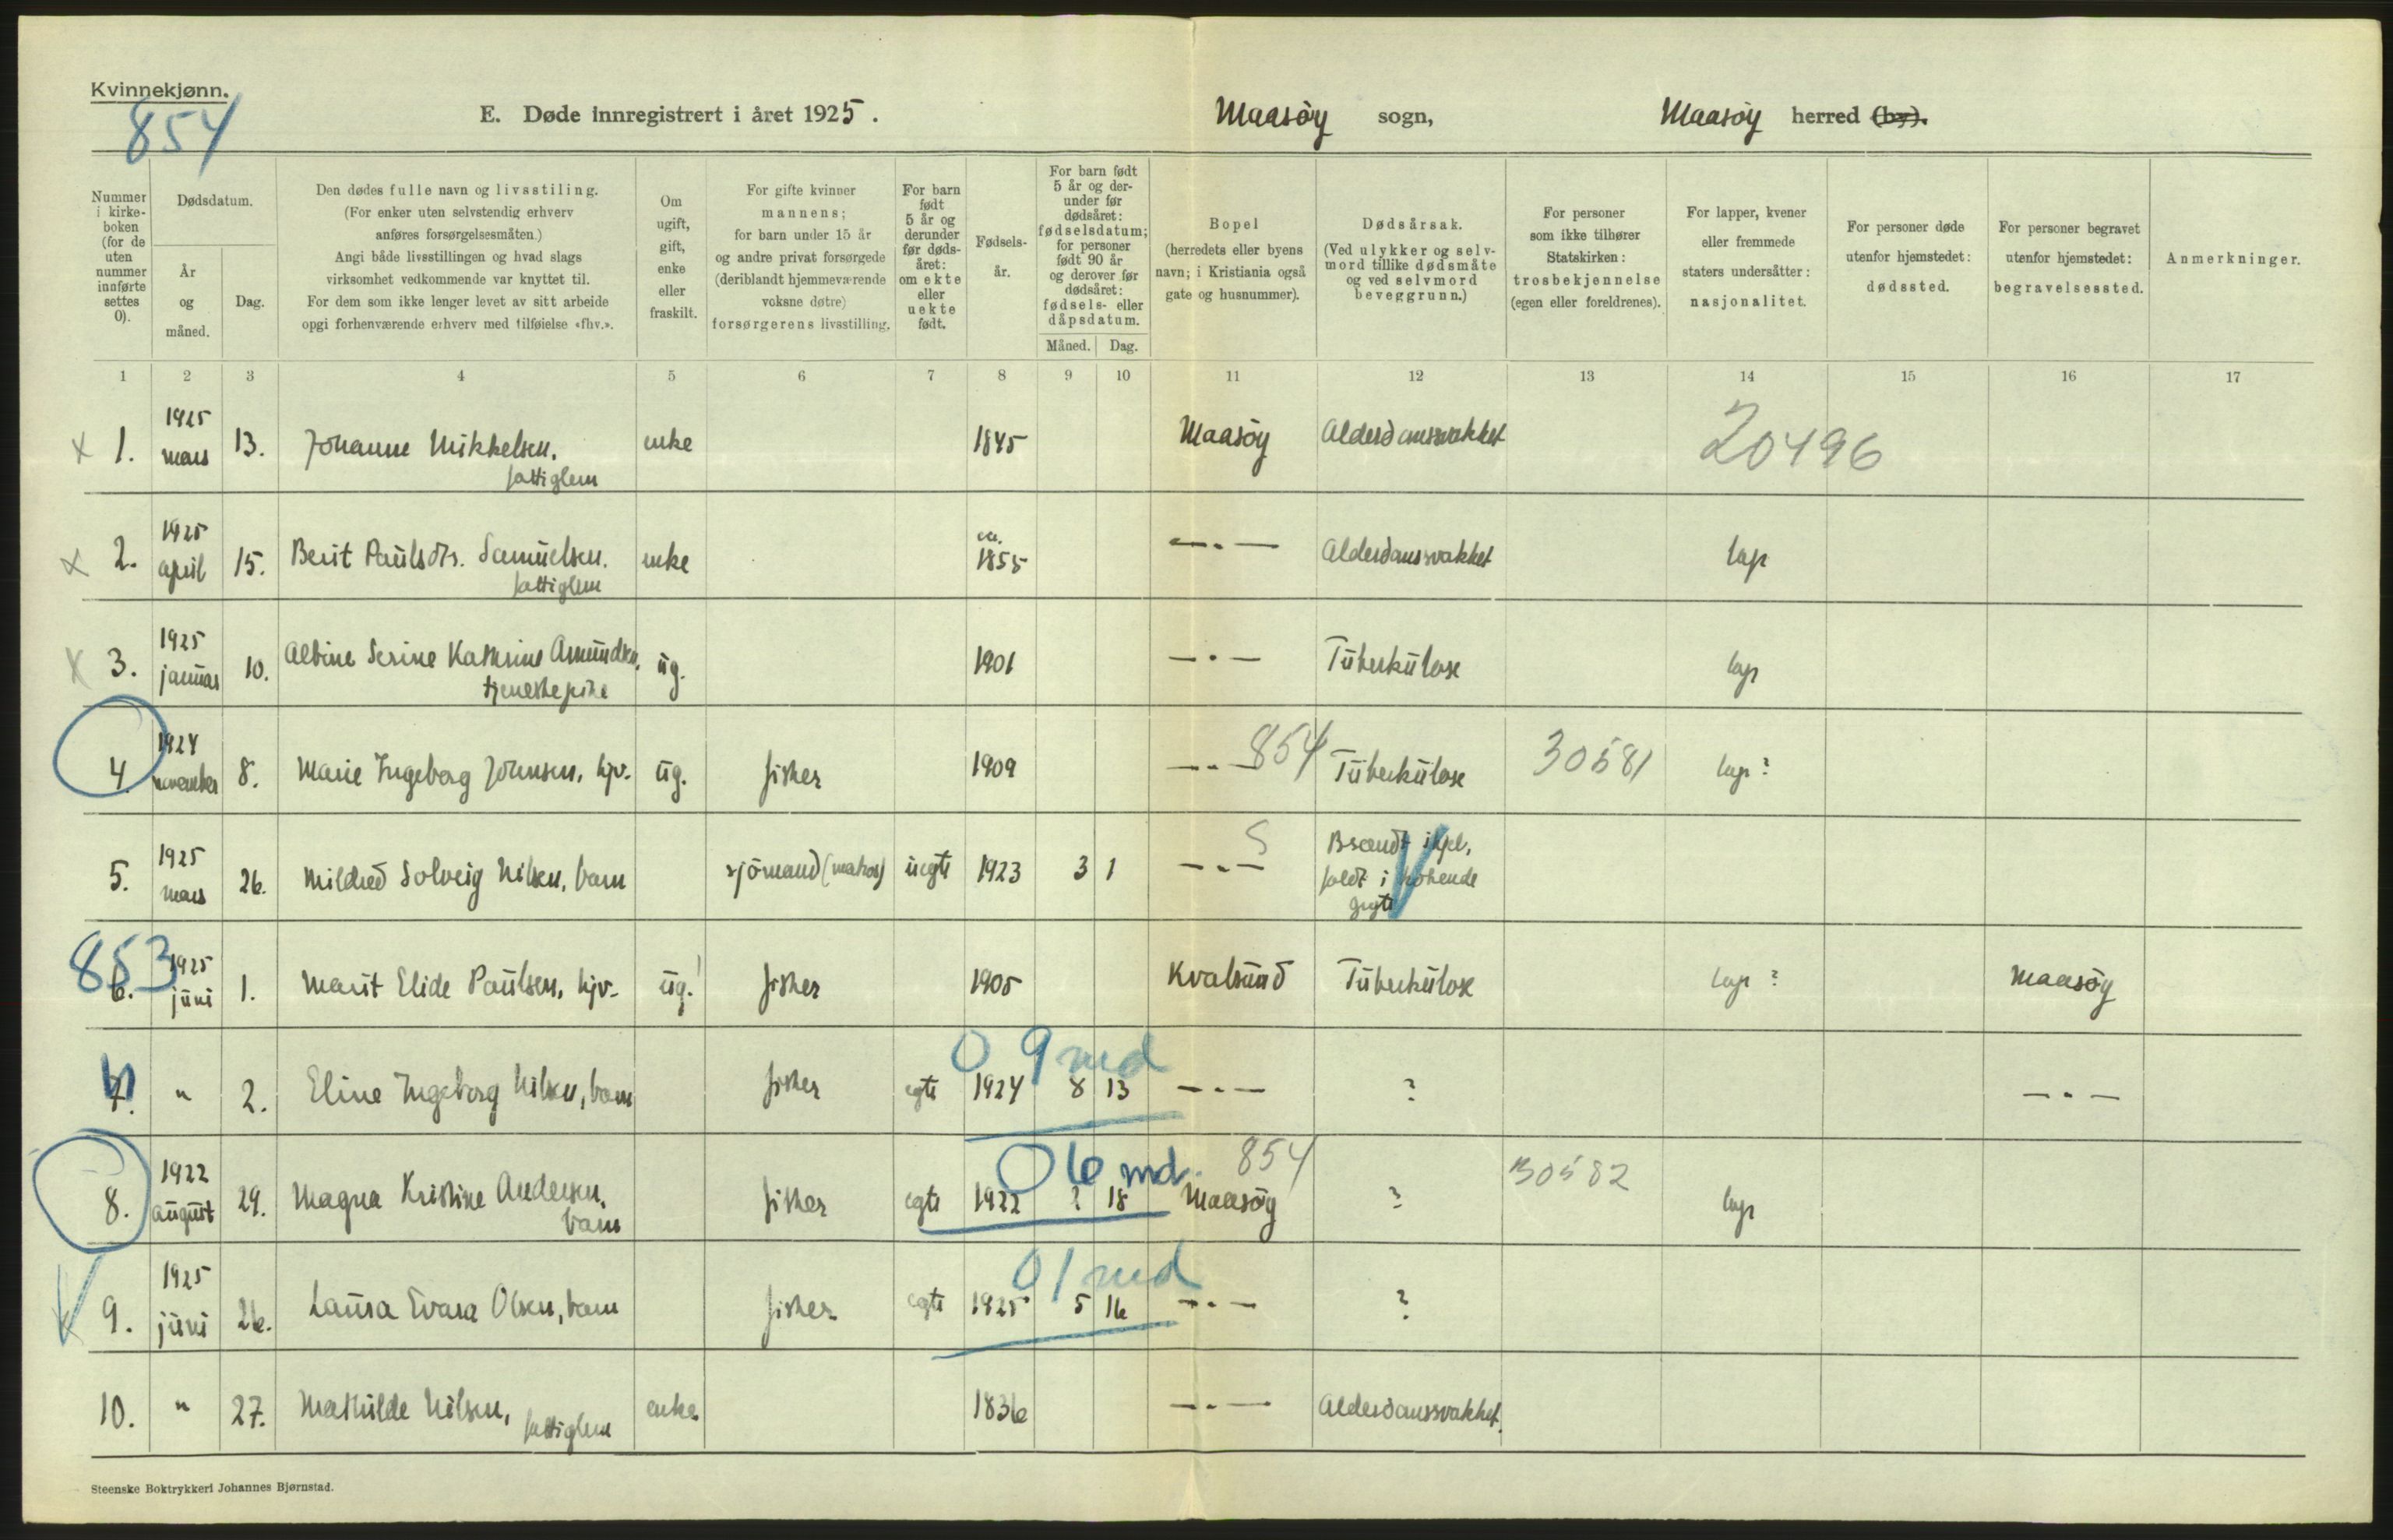 Kvinnekjønn.
854
E. Døde innregistrert i året 1925.
Maasöy sogn,
Maasöy herred (by).
Nummer i kirke- boken (for de uten nummer innførte settes 0).
Dødsdatum.
År og måned.
Dag.
Den dødes fulle navn og livsstiling.
(For enker uten selvstendig erhverv
anføres forsørgelsesmåten.)
Angi både livsstillingen og hvad slags
virksomhet vedkommende var knyttet til.
For dem som ikke lenger levet av sitt arbeide
opgi forhenværende erhverv med tilføielse «fhv.».
Om ugift, gift, enke eller fraskilt.
For gifte kvinner
mannens;
for barn under 15 år
og andre privat forsørgede
(deriblandt hjemmeværende
voksne døtre)
forsørgerens livsstilling.
For barn født 5 år og derunder før døds- året: om ekte eller uekte født.
Fødsels- år.
For barn født
5 år og der-
under før
dødsåret:
fødselsdatum;
for personer
født 90 år
og derover før
dødsåret:
fødsels- eller
dåpsdatum.
Måned. Dag.
Bopel
(herredets eller byens
navn; i Kristiania også
gate og husnummer).
Dødsårsak.
(Ved ulykker og selv-
mord tillike dødsmåte
og ved selvmord
beveggrunn.)
For personer
som ikke tilhører
Statskirken:
trosbekjennelse
(egen eller foreldrenes).
For lapper, kvener
eller fremmede
staters undersåtter:
nasjonalitet.
For personer døde
utenfor hjemstedet:
dødssted.
For personer begravet
utenfor hjemstedet:
begravelsessted.
Anmerkninger.
1 2 3 4 5 6 7 8 9 10 11 12 13 14 15 16 17
x 1. 1925 mars 13. Johanne Mikkelsen, fattiglem enke 1845 Maasöy Alderdomssvakhet 20496
x 2. 1925 april 15. Berit Paulsdtr. Samuelsen. fattiglem enke ca. 1855 — " — Alderdomssvakhet lap
x 3. 1925 januar 10. Albine Serine Kathrine Amundsen, tjenestepike ug. 1901 — " — Tuberkulose lap
4. 1924 november 8. Marie Ingeborg Johnsen, hjv. ug. fisker 1909 — " — 854 Tuberkulose 30581 lap?
5. 1925 mars 26. Mildred Solveig Nilsen, barn sjömand (matros) uegte 1923 3 1 — " — S Brændt ihjel, faldt i kokende gryte
853
6. 1925 juni 1. Marit Elide Paulsen, hjv. ug. fisker 1905 Kvalsund Tuberkulose lap ? Maasöy
7. " 2. Eline Ingeborg Nilsen, barn fisker egte 1924 8 13 — " — ? — " —
0 9 md
8. 1922 august 29. Magna Kristine Andersen, barn fisker egte 1922 ? 18 Maasöy ? lap
0 6 md. 854 30582
9. 1925 juni 26. Laura Evara Olsen, barn fisker egte 1925 5 16 — " — ?
0 1 md
10. " 27. Mathilde Nilsen, fattiglem enke 1836 — " — Alderdomssvakhet.
Steenske Boktrykkeri Johannes Bjørnstad.